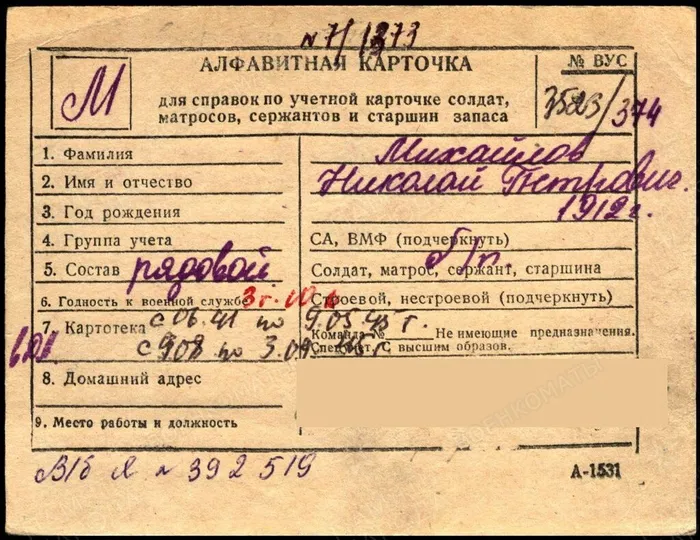 N 7/1373
АЛФАВИТНАЯ КАРТОЧКА
для справок по учетной карточке солдат,
матросов, сержантов и старшин запаса
М
№ ВУС
3523/374
1. Фамилия Михайлов
2. Имя и отчество Николай Петрович.
3. Год рождения 1912г.
4. Группа учета СА, ВМФ (подчеркнуть)
5. Состав рядовой Солдат, матрос, сержант, старшина
б/п.
6. Годность к военной службе Строевой, нестроевой (подчеркнуть)
7. Картотека с 06.41 по 9.05.45 г.
Команда № Не имеющие предназначения.
с 9.08 по 3.09. 45 г
Спецконт. С высшим образов.
8. Домашний адрес
9. Место работы и должность
В/б Я N 392519
А-1531